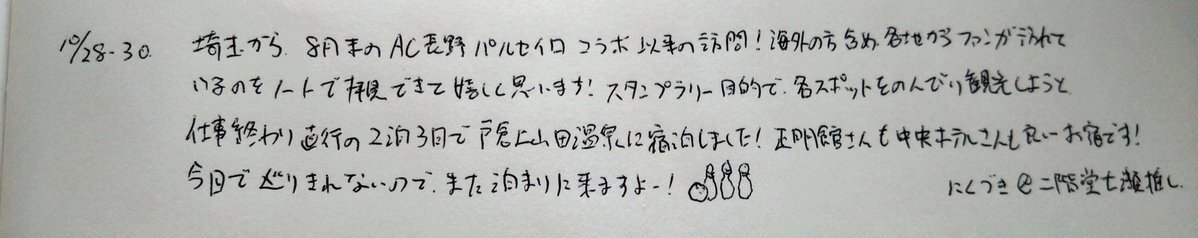 10/28-30. 埼玉から、8月末のAC長野パルセイロコラボ以来の訪問！海外の方含め、各地からファンが訪れて
いるのをノートで拝見できて嬉しく思います！スタンプラリー目的で、各スポットをのんびり観光しようと
仕事終わり直行の2泊3日で戸倉上山田温泉に宿泊しました！正明館さんも中央ホテルさんも良いお宿です！
今回で巡りきれてないので、また泊まりに来ますよー！
にくづき@二階堂七瀬推し